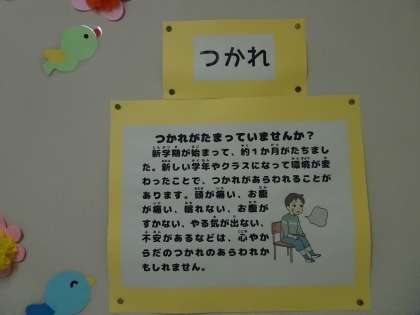 つかれ
つかれがたまっていませんか？
新学期が始まって、約１か月がたちまし
た。新しい学年やクラスになって環境が変
わったことで、つかれがあらわれることが
あります。頭が痛い、お腹
が痛い、眠れない、お腹が
すかない、やる気が出ない、
不安があるなどは、心やか
らだのつかれのあらわれか
もしれません。